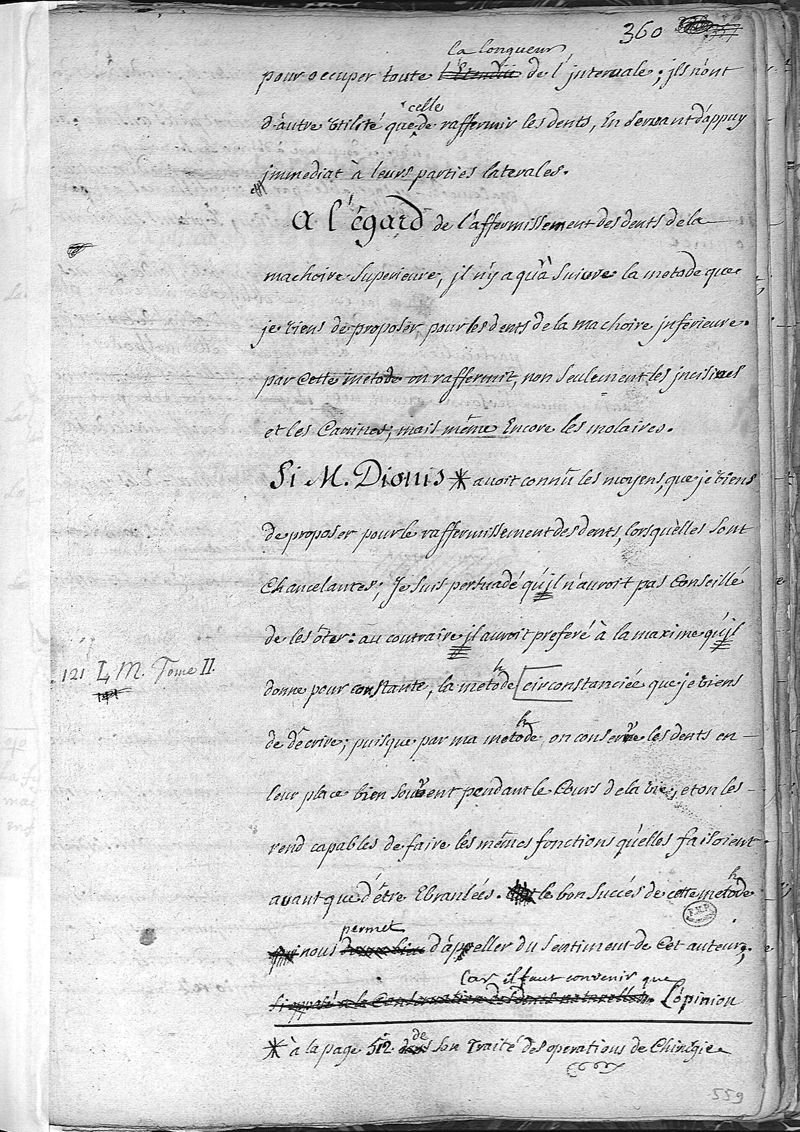 360
la longueur
pour occuper toute l'Etendüe de l'jntervale; jls n'ont
celle
d'autre utilité que de raffermir les dents, En servant d'appuy
jmmediat à leurs parties laterales.
A l'égard de l'affermissement des dents de la
machoire Superieure, jl n'y a qu'à Suivre la metode que
je viens de proposer pour les dents de la machoire jnferieure.
par cette metode on raffermit, non seulement les jncisives
et les Canines; mais même Encore les molaires.
Si M. Dionis * avoit connû les moyens, que je viens
de proposer pour le raffermissement des dents, lorsqu'elles sont
Chancelantes; Je suis persuadé qu'jl n'auroit pas Conseillé
de les ôter: au contraire jl auroit preferé à la maxime qu'jl
121 L M. Tome II.
h
donne pour constante, la metode [circonstanciée que je viens
h
de décrire; puisque par ma metode, on conserve les dents en
leur place bien souvent pendant le Cours de la vie, et on les
rend capables de faire les mêmes fonctions qu'elles faisoient
h
avant que d'être Ebranlées. le bon Succés de cette metode
permet
nous d'appeller du Sentiment de Cet auteur;
Car il faut convenir que
Si opposé a la Conservation des dents naturelles. L'opinion
de
* à la page 512 dans son Traité des operations de Chirurgie
559